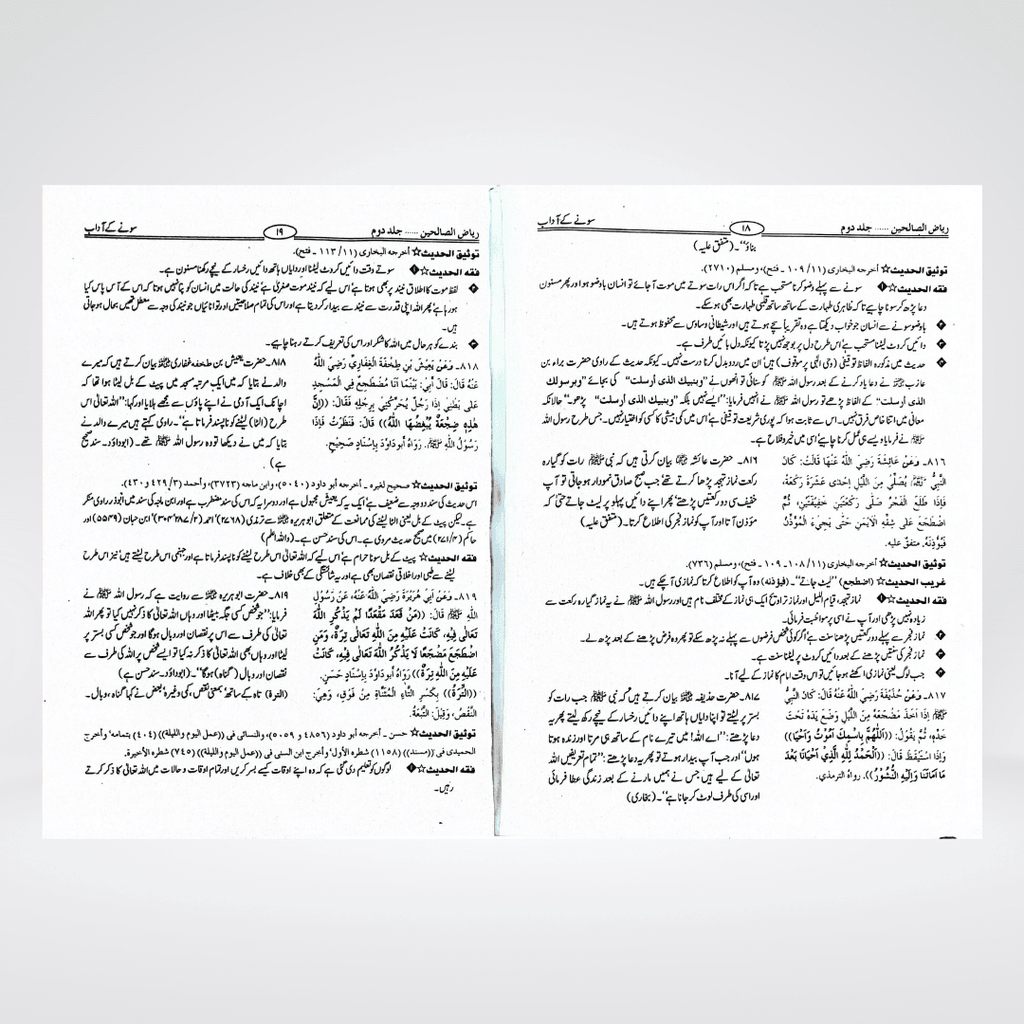 ریاض الصالحین ...... جلد دوم ۱۸ سونے کے آداب
بناؤ“۔ (متفق علیہ)
توثيق الحديث☆ أخرجه البخاری (۱۱/ ۱۰۹ ۔ فتح)، ومسلم (۲۷۱۰).
فقه الحديث☆ سونے سے پہلے وضو کرنا مستحب ہے تاکہ اگر اس رات سوتے میں موت آ جائے تو انسان باوضو ہو اور پھر مسنون
دعا پڑھ کر سونا چاہیے تاکہ ظاہری طہارت کے ساتھ ساتھ قلبی طہارت بھی ہو سکے۔
باوضو سونے سے انسان جو خواب دیکھتا ہے وہ تقریباً سچے ہوتے ہیں اور شیطانی وساوس سے محفوظ ہوتے ہیں۔
دائیں کروٹ لیٹنا مستحب ہے اس طرح دل پر بوجھ نہیں پڑتا کیونکہ دل بائیں طرف ہے۔
حدیث میں مذکورہ الفاظ توقیفی (وحی الٰہی پر موقوف) ہیں ان میں ردو بدل کرنا درست نہیں۔ کیونکہ حدیث کے راوی حضرت براء بن
عازب ؓ نے دعا یاد کرنے کے بعد رسول اللہ ﷺ کو سنائی تو انھوں نے ”وبنبيك الذى أرسلت“ کی بجائے ”وبرسولك
الذى أرسلت“ کے الفاظ پڑھے تو رسول اللہ ﷺ نے انہیں فرمایا: ”ایسے نہیں بلکہ ”وبنبيك الذى أرسلت“ پڑھو۔“ حالانکہ
معانی میں اتنا خاص فرق نہیں۔ اس سے ثابت ہوا کہ پوری شریعت توقیفی ہے اس میں کمی بیشی کا کسی کو اختیار نہیں۔ جس طرح رسول اللہ
ﷺ نے فرمایا ویسے ہی عمل کرنا چاہیے اسی میں خیر و فلاح ہے۔
۸۱۶۔ وَعَنْ عَائِشَةَ رَضِيَ اللَّهُ عَنْهَا قَالَتْ: كَانَ
النَّبِيُّ ﷺ يُصَلِّي مِنَ اللَّيْلِ إِحْدَى عَشْرَةَ رَكْعَةً،
فَإِذَا طَلَعَ الْفَجْرُ صَلَّى رَكْعَتَيْنِ خَفِيفَتَيْنِ، ثُمَّ
اضْطَجَعَ عَلَى شِقِّهِ الْأَيْمَنِ حَتَّى يَجِيءَ الْمُؤَذِّنُ
فَيُؤْذِنَهُ. متفق عليه.
۸۱۶۔ حضرت عائشہ ؓ بیان کرتی ہیں کہ نبی ﷺ رات کو گیارہ
رکعت نماز تہجد پڑھا کرتے تھے جب صبح صادق نمودار ہو جاتی تو آپ
خفیف سی دو رکعتیں پڑھتے پھر اپنے دائیں پہلو پر لیٹ جاتے حتیٰ کہ
مؤذن آتا اور آپ کو نماز فجر کی اطلاع کرتا۔ (متفق علیہ)
توثيق الحديث☆ أخرجه البخاری (۱۱/ ۱۰۸۔ ۱۰۹ ۔ فتح)، ومسلم (۷۳۶).
غريب الحديث☆ (اضطجع) ”لیٹ جاتے“۔ (فيؤذنه) وہ آپ کو اطلاع کرتا کہ نمازی آ چکے ہیں۔
فقه الحديث☆ نماز تہجد، قیام اللیل اور نماز تراویح ایک ہی نماز کے مختلف نام ہیں اور رسول اللہ ﷺ نے یہ نماز گیارہ رکعت سے
زیادہ نہیں پڑھی اور آپ نے اسی پر مواظبت فرمائی۔
نماز فجر سے پہلے دو رکعتیں پڑھنا سنت ہے اگر کوئی شخص فرضوں سے پہلے نہ پڑھ سکے تو پھر وہ فرض پڑھنے کے بعد پڑھ لے۔
نماز فجر کی سنتیں پڑھنے کے بعد دائیں کروٹ پر لیٹنا سنت ہے۔
جب لوگ یعنی نمازی اکٹھے ہو جائیں تو اس وقت امام کا نماز کے لیے آنا۔
۸۱۷۔ وَعَنْ حُذَيْفَةَ رَضِيَ اللَّهُ عَنْهُ قَالَ: كَانَ النَّبِيُّ
ﷺ إِذَا أَخَذَ مَضْجَعَهُ مِنَ اللَّيْلِ وَضَعَ يَدَهُ تَحْتَ
خَدِّهِ، ثُمَّ يَقُولُ: ((اللَّهُمَّ بِاسْمِكَ أَمُوتُ وَأَحْيَا))
وَإِذَا اسْتَيْقَظَ قَالَ: ((الْحَمْدُ لِلَّهِ الَّذِي أَحْيَانَا بَعْدَ
مَا أَمَاتَنَا وَإِلَيْهِ النُّشُورُ)). رواهُ الترمذي.
۸۱۷۔ حضرت حذیفہ ؓ بیان کرتے ہیں کہ نبی ﷺ جب رات کو
بستر پر لیٹتے تو اپنا دایاں ہاتھ اپنے دائیں رخسار کے نیچے رکھ لیتے پھر یہ
دعا پڑھتے: ”اے اللہ! میں تیرے نام کے ساتھ ہی مرتا اور زندہ ہوتا
ہوں“ اور جب آپ بیدار ہوتے تو پھر یہ دعا پڑھتے: ”تمام تعریفیں اللہ
تعالیٰ کے لیے ہیں جس نے ہمیں مارنے کے بعد زندگی عطا فرمائی
اور اسی کی طرف لوٹ کر جانا ہے“۔ (بخاری)
ریاض الصالحین ...... جلد دوم ۱۹ سونے کے آداب
توثيق الحديث☆ أخرجه البخاری (۱۱/ ۱۱۳ ۔ فتح).
فقه الحديث☆ سوتے وقت دائیں کروٹ لیٹنا اور دایاں ہاتھ دائیں رخسار کے نیچے رکھنا مسنون ہے۔
لفظ موت کا اطلاق نیند پر بھی ہوتا ہے اس لیے کہ نیند موت صغریٰ ہے نیند کی حالت میں انسان کو پتا نہیں ہوتا کہ اس کے آس پاس کیا
ہو رہا ہے پھر اللہ اپنی قدرت سے نیند سے بیدار کر دیتا ہے اور اس کی تمام صلاحیتیں اور توانائیاں جو نیند کی وجہ سے معطل تھیں بحال ہو جاتی
ہیں۔
بندے کو ہر حال میں اللہ کا شکر اور اس کی تعریف کرتے رہنا چاہیے۔
۸۱۸۔ وَعَنْ يَعِيشَ بْنِ طِخْفَةَ الْغِفَارِيِّ رَضِيَ اللَّهُ
عَنْهُ قَالَ: قَالَ أَبِي: بَيْنَمَا أَنَا مُضْطَجِعٌ فِي الْمَسْجِدِ
عَلَى بَطْنِي إِذَا رَجُلٌ يُحَرِّكُنِي بِرِجْلِهِ فَقَالَ: ((إِنَّ
هَذِهِ ضِجْعَةٌ يُبْغِضُهَا اللَّهُ)) قَالَ: فَنَظَرْتُ فَإِذَا
رَسُولُ اللَّهِ ﷺ. رَوَاهُ أَبُو دَاوُدَ بِإِسْنَادٍ صَحِيحٍ.
۸۱۸۔ حضرت یعیش بن طخفہ غفاری ؓ بیان کرتے ہیں کہ میرے
والد نے بتایا کہ میں ایک مرتبہ مسجد میں پیٹ کے بل لیٹا ہوا تھا کہ
اچانک ایک آدمی نے اپنے پاؤں سے مجھے ہلایا اور کہا: ”اللہ تعالیٰ اس
طرح (الٹا) لیٹنے کو ناپسند فرماتا ہے“۔ راوی کہتے ہیں میرے والد نے
بتایا کہ میں نے دیکھا تو وہ رسول اللہ ﷺ تھے۔ (ابوداؤد۔ سند صحیح
ہے)
توثيق الحديث☆ صحيح لغيره ۔ أخرجه أبو داود (۵۰۴۰)، وابن ماجه (۳۷۲۳)، وأحمد (۳/ ۴۲۹ و ۴۳۰).
اس حدیث کی سند دو وجہ سے ضعیف ہے ایک یہ کہ یعیش مجہول ہے اور دوسرا یہ کہ اس کی سند مضطرب ہے اور ابن ماجہ کی سند میں ابوذر راوی منکر
ہے۔ لیکن پیٹ کے بل یعنی الٹا لیٹنے کی ممانعت کے متعلق ابو ہریرہ ؓ سے ترمذی (۲۷۶۸) احمد (۲/ ۲۸۷، ۳۰۴) ابن حبان (۵۵۴۹)
حاکم (۴/ ۲۷۱) میں صحیح حدیث مروی ہے۔ اس کی سند حسن ہے۔ (واللہ اعلم)
فقه الحديث☆ پیٹ کے بل سونا حرام ہے اس لیے کہ اللہ تعالیٰ اس طرح لیٹنے کو ناپسند فرماتا ہے اور جہنمی اس طرح لیٹتے ہیں نیز اس طرح
لیٹنے سے طبی اور اخلاقی نقصان بھی ہے اور یہ شائستگی کے بھی خلاف ہے۔
۸۱۹۔ وَعَنْ أَبِي هُرَيْرَةَ رَضِيَ اللَّهُ عَنْهُ، عَنْ رَسُولِ
اللَّهِ ﷺ قَالَ: ((مَنْ قَعَدَ مَقْعَدًا لَمْ يَذْكُرِ اللَّهَ
تَعَالَى فِيهِ، كَانَتْ عَلَيْهِ مِنَ اللَّهِ تَعَالَى تِرَةٌ، وَمَنِ
اضْطَجَعَ مَضْجَعًا لَا يَذْكُرُ اللَّهَ تَعَالَى فِيهِ، كَانَتْ
عَلَيْهِ مِنَ اللَّهِ تِرَةٌ)) رَوَاهُ أَبُو دَاوُدَ بِإِسْنَادٍ حَسَنٍ.
((التِّرَةُ)) بِكَسْرِ التَّاءِ الْمُثَنَّاةِ مِنْ فَوْقُ، وَهِيَ:
النَّقْصُ، وَقِيلَ: التَّبِعَةُ.
۸۱۹۔ حضرت ابو ہریرہ ؓ سے روایت ہے کہ رسول اللہ ﷺ نے
فرمایا: ”جو شخص کسی جگہ بیٹھا اور وہاں اللہ تعالیٰ کا ذکر نہیں کیا تو پھر اللہ
تعالیٰ کی طرف سے اس پر نقصان اور وبال ہوگا اور جو شخص کسی بستر پر
لیٹا اور وہاں بھی اللہ تعالیٰ کا ذکر نہ کیا تو ایسے شخص پر اللہ کی طرف سے
نقصان اور وبال (گناہ) ہوگا“۔ (ابوداؤد۔ سند حسن ہے)
(الترة) تاء کے ساتھ بمعنی نقص، کمی وغیرہ، بعض نے کہا گناہ، وبال۔
توثيق الحديث☆ حسن ۔ أخرجه أبو داود (۴۸۵۶ و ۵۰۵۹)، والنسائی فی ((عمل اليوم والليلة)) (۴۰۴) بتمامه، وأخرج
الحميدی فی ((مسند)) (۱۱۵۸) شطره الأول، وأخرج ابن السنی فی ((عمل اليوم والليلة)) (۷۴۵) شطره الأخيرة.
فقه الحديث☆ لوگوں کو تعلیم دی گئی ہے کہ وہ اپنے اوقات کیسے بسر کریں اور تمام اوقات و حالات میں اللہ تعالیٰ کا ذکر کرتے
رہیں۔